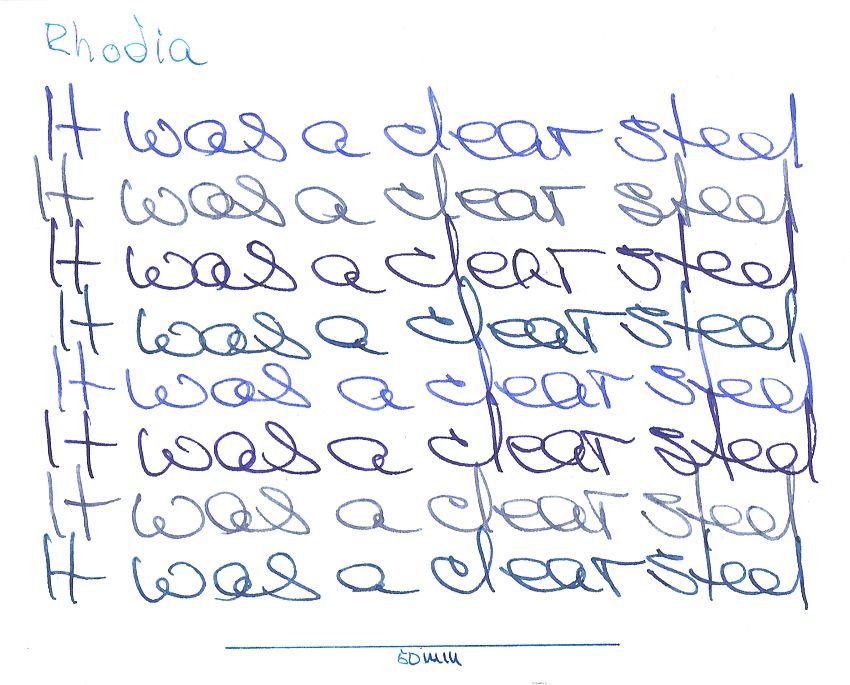 Rhodia
It was a clear steel
It was a clear steel
It was a clear steel
It was a clear steel
It was a clear steel
It was a clear steel
It was a clear steel
It was a clear steel
50mm